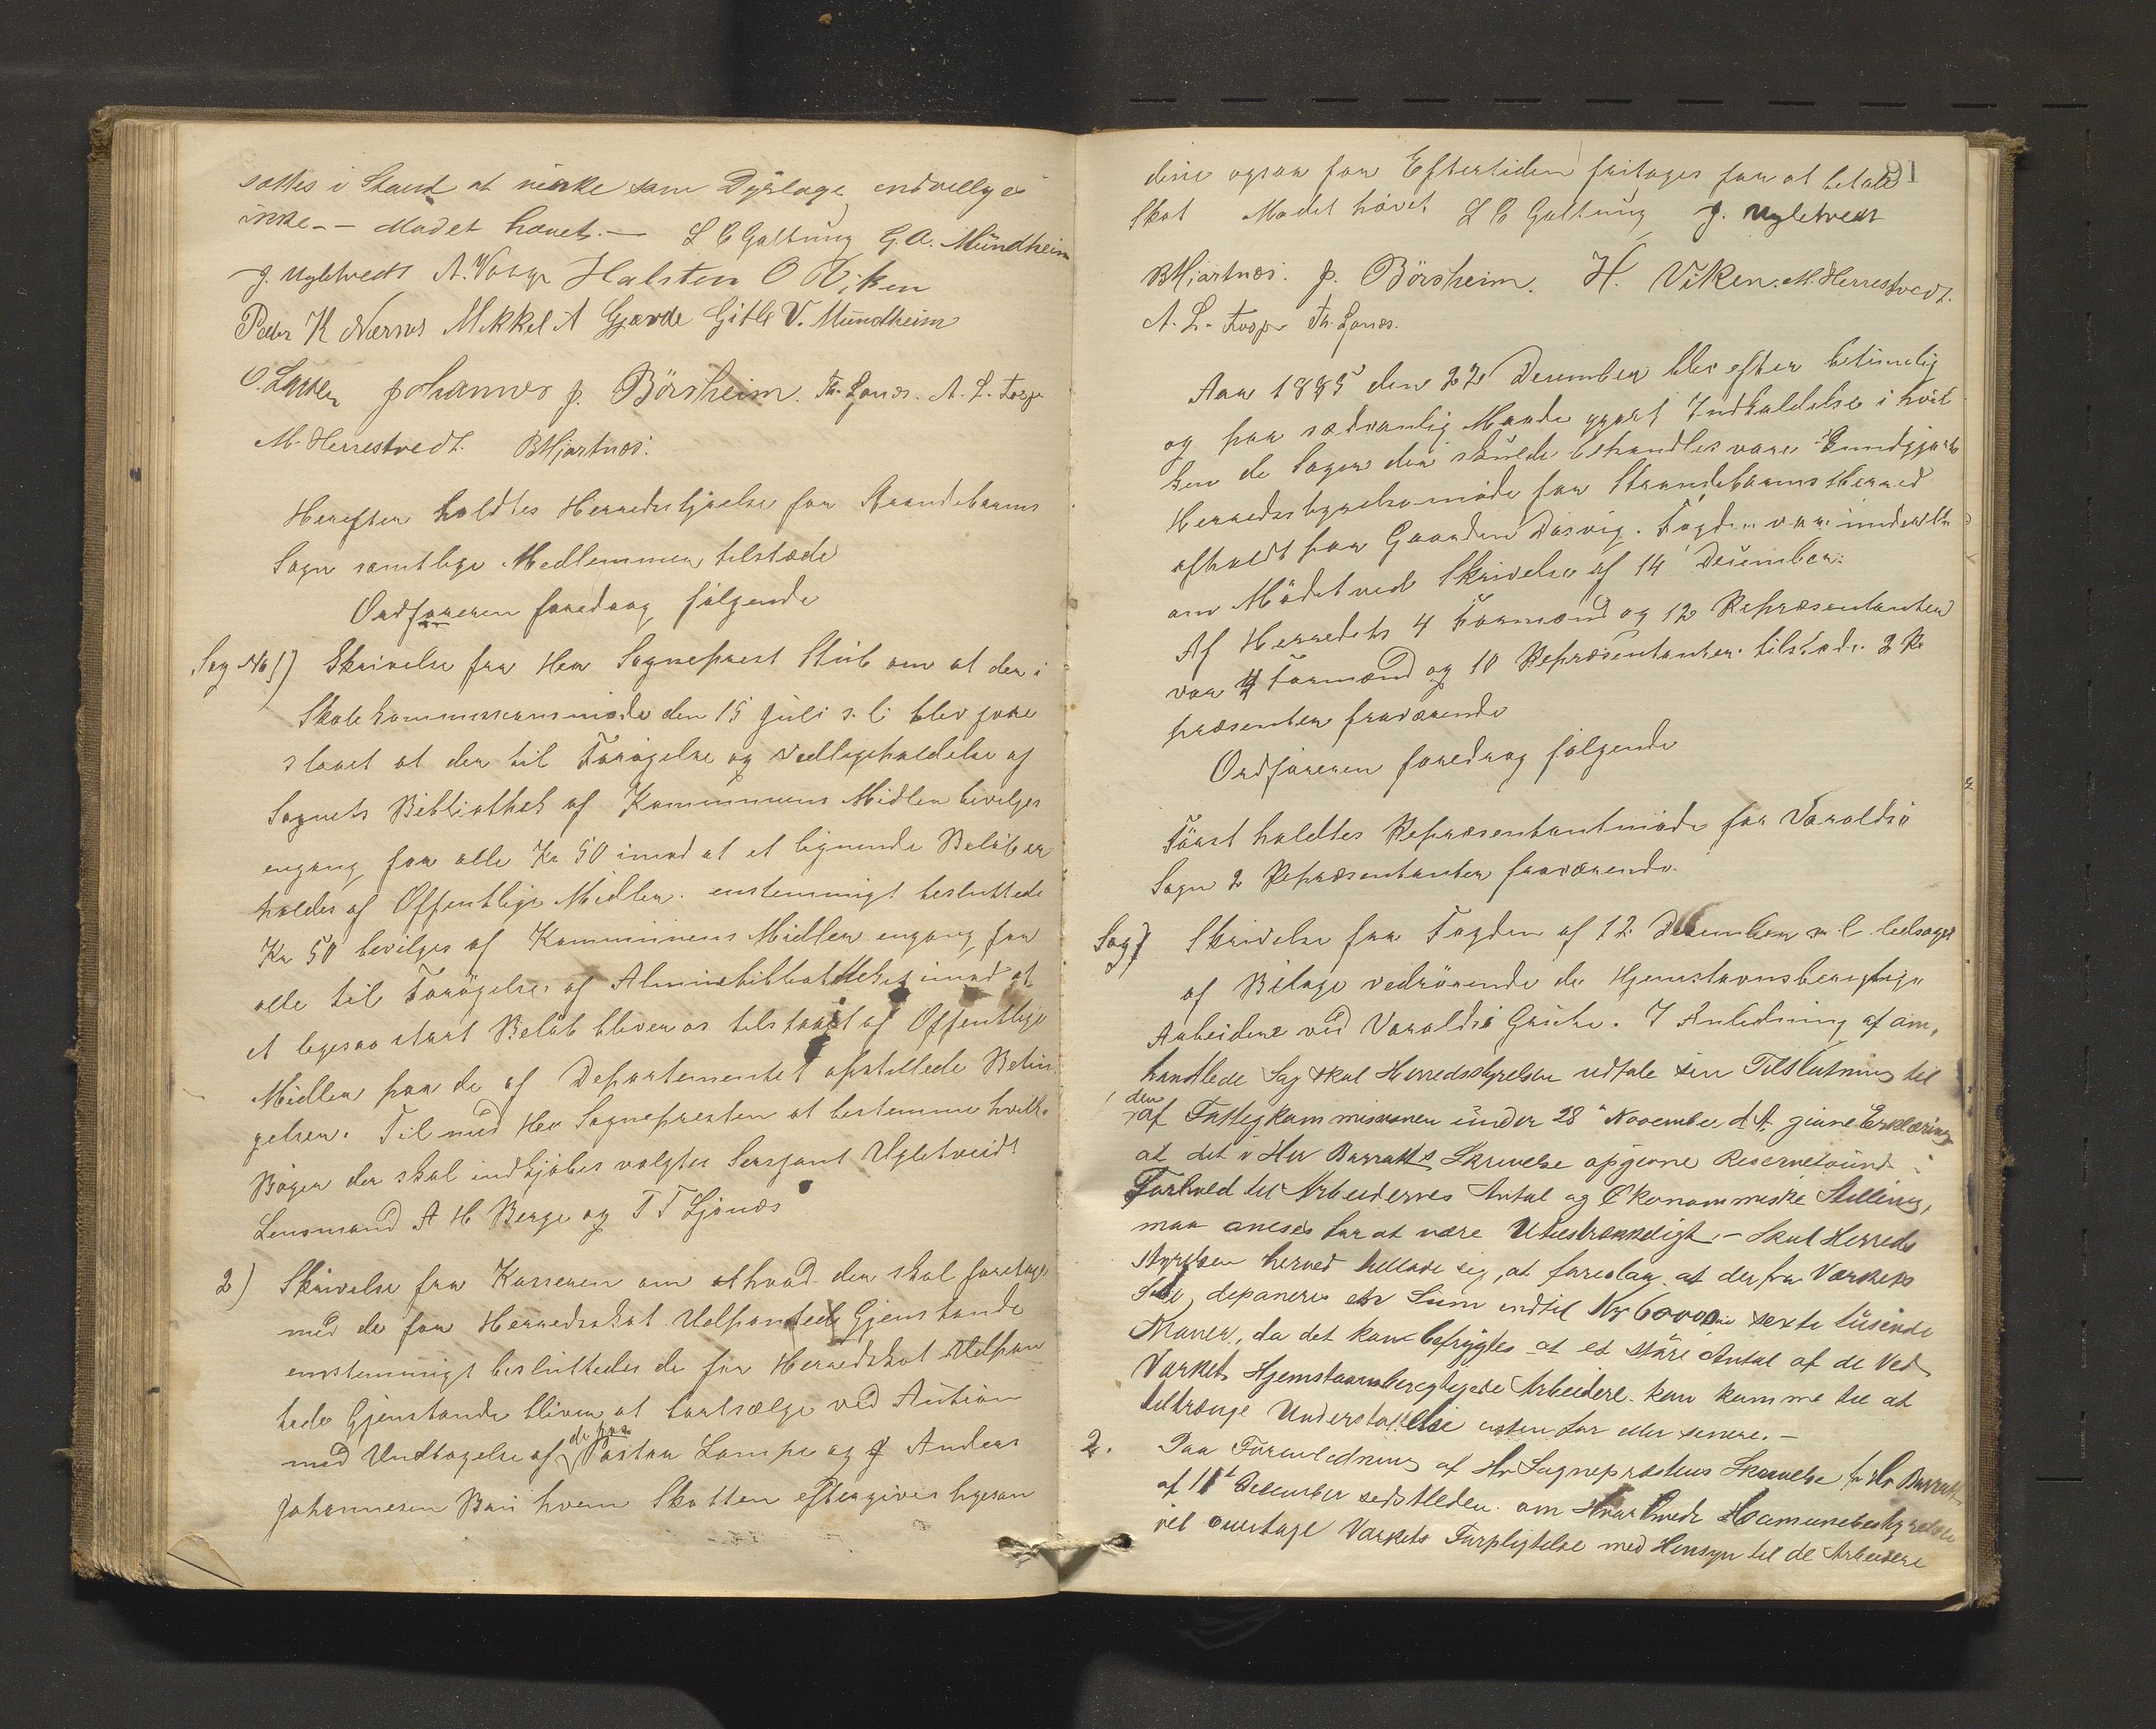 sættes i Stand at virke som Dyrlæge indvilgés
ikke. - Mødet hævet. - L C Galtung G. A. Mündheim
J. Ugletvedt Halsten O Viken
Peder K Nernes Mikkel A Gjærde Gitle V. Mündheim
Johannes J. Börsheim. Th. Ljonæs. A. L.
M. Herrestvedt. B Hjartnæs.
Herefter holdtes Herredsstyrelse for Strandebarms
Sogn samtlige Medlemmer tilstæde
Ordføreren foredrog følgende
Sag No 1) Skrivelse fra Her Sogneprest Stub om at der i
Skolekommissionsmøde den 15 Juli s. l. blev fore
slaaet at der til Forøgelse og Vedligeholdelse af
Sognets Bibliothek af Kommunens Midler bevilges
engang for alle Kr 50 imod at et lignende Beløb er
holdes af Offentlige Midler. enstemmigt besluttede
Kr 50 bevilges af Kommunens Midler engang for
alle til Forøgelse af Almuebibliotheket imod at
et ligesaa stort Beløb bliver os tilstaaet af Offentlige
Midler paa de af Departementet opstillede Betin
gelser. Til med Her Sognepresten at bestemme hvilke
Bøger der skal indkjøbes valgtes Sersjant Ugletveidt
Lensmand A H Berge og T T Ljonæs
2) Skrivelse fra Kasseren om at hvad der skal foretages
med de for Herredsskat Udpantede Gjenstande
enstemmigt besluttedes de for Herredskat Udpan
tede Gjenstande bliver at bortsælge ved Auktion
de fra
med Undtagelse af Lampe og Anders
Johannesen hvem Skatten eftergives ligesom
91
disse ogsaa for Eftertiden fritages for at betale
Skat Mødet hævet L C Galtung J. Ugletvedt
B Hjartnæs. J. Börsheim. H. Viken. M. Herrestvedt.
A. L. Th. Ljonæs.
Aar 1885 den 22 December blev efter betimelig
og paa sædvanlig Maade gjort Indkaldelse i hvil
ken de Sager der skulde behandles vare kundgjorte
Herredsstyrelsesmøde for Strandebarms Herred
afholdt paa Gaarden Tosvig. Fogden var underrettet
om Mødet ved Skrivelse af 14 December.
Af Herredets 4 Formænd og 12 Repræsentanter
var 4 Formænd og 10 Repræsentanter tilstæde. 2 Re
præsenter fraværende
Ordføreren foredrog følgende
Først holdtes Repræsentantmøde for Varaldsø
Sogn 2 Repræsentanter fraværende.
Sag 1 Skrivelse fra Fogden af 12 December s. l. ledsaget
af Bilage vedrørende de Hjemstavnsberegtige
Arbeidere ved Varaldsø Grube. I Anledning af om,
handlede Sag skal Herredsstyrelsen udtale sin Tilslutning til
den
af Fattigkommissionen under 28de November d. A. givne Erklæring
at det i Her Barratts Skrivelse opgivne Reservefound i
Forhold til Arbeidernes Antal og Ekonommiske Stilling,
maa ansees for at være Utilstrækkeligt, - Skal Herreds
styrelsen herved tillade sig, at foreslaa at der fra Værkets
Side deponeres en Sum indtil Kr 60000 sexti tusinde
Kroner, da det kan befrygtes at et större Antal af de Ved
Værket Hjemstavnsberegtigede Arbeidere kan komme til at
tiltrænge Understøttelse enten før eller senere. -
2. Paa Foranledning af Hr Sogneprestens Skrivelse fr Hr Barratt
af 11te December sidstleden om Hvorvidt Komunebestyrelsen
vil overtage Værkets Forpligtelse med Hensyn til de Arbeidere